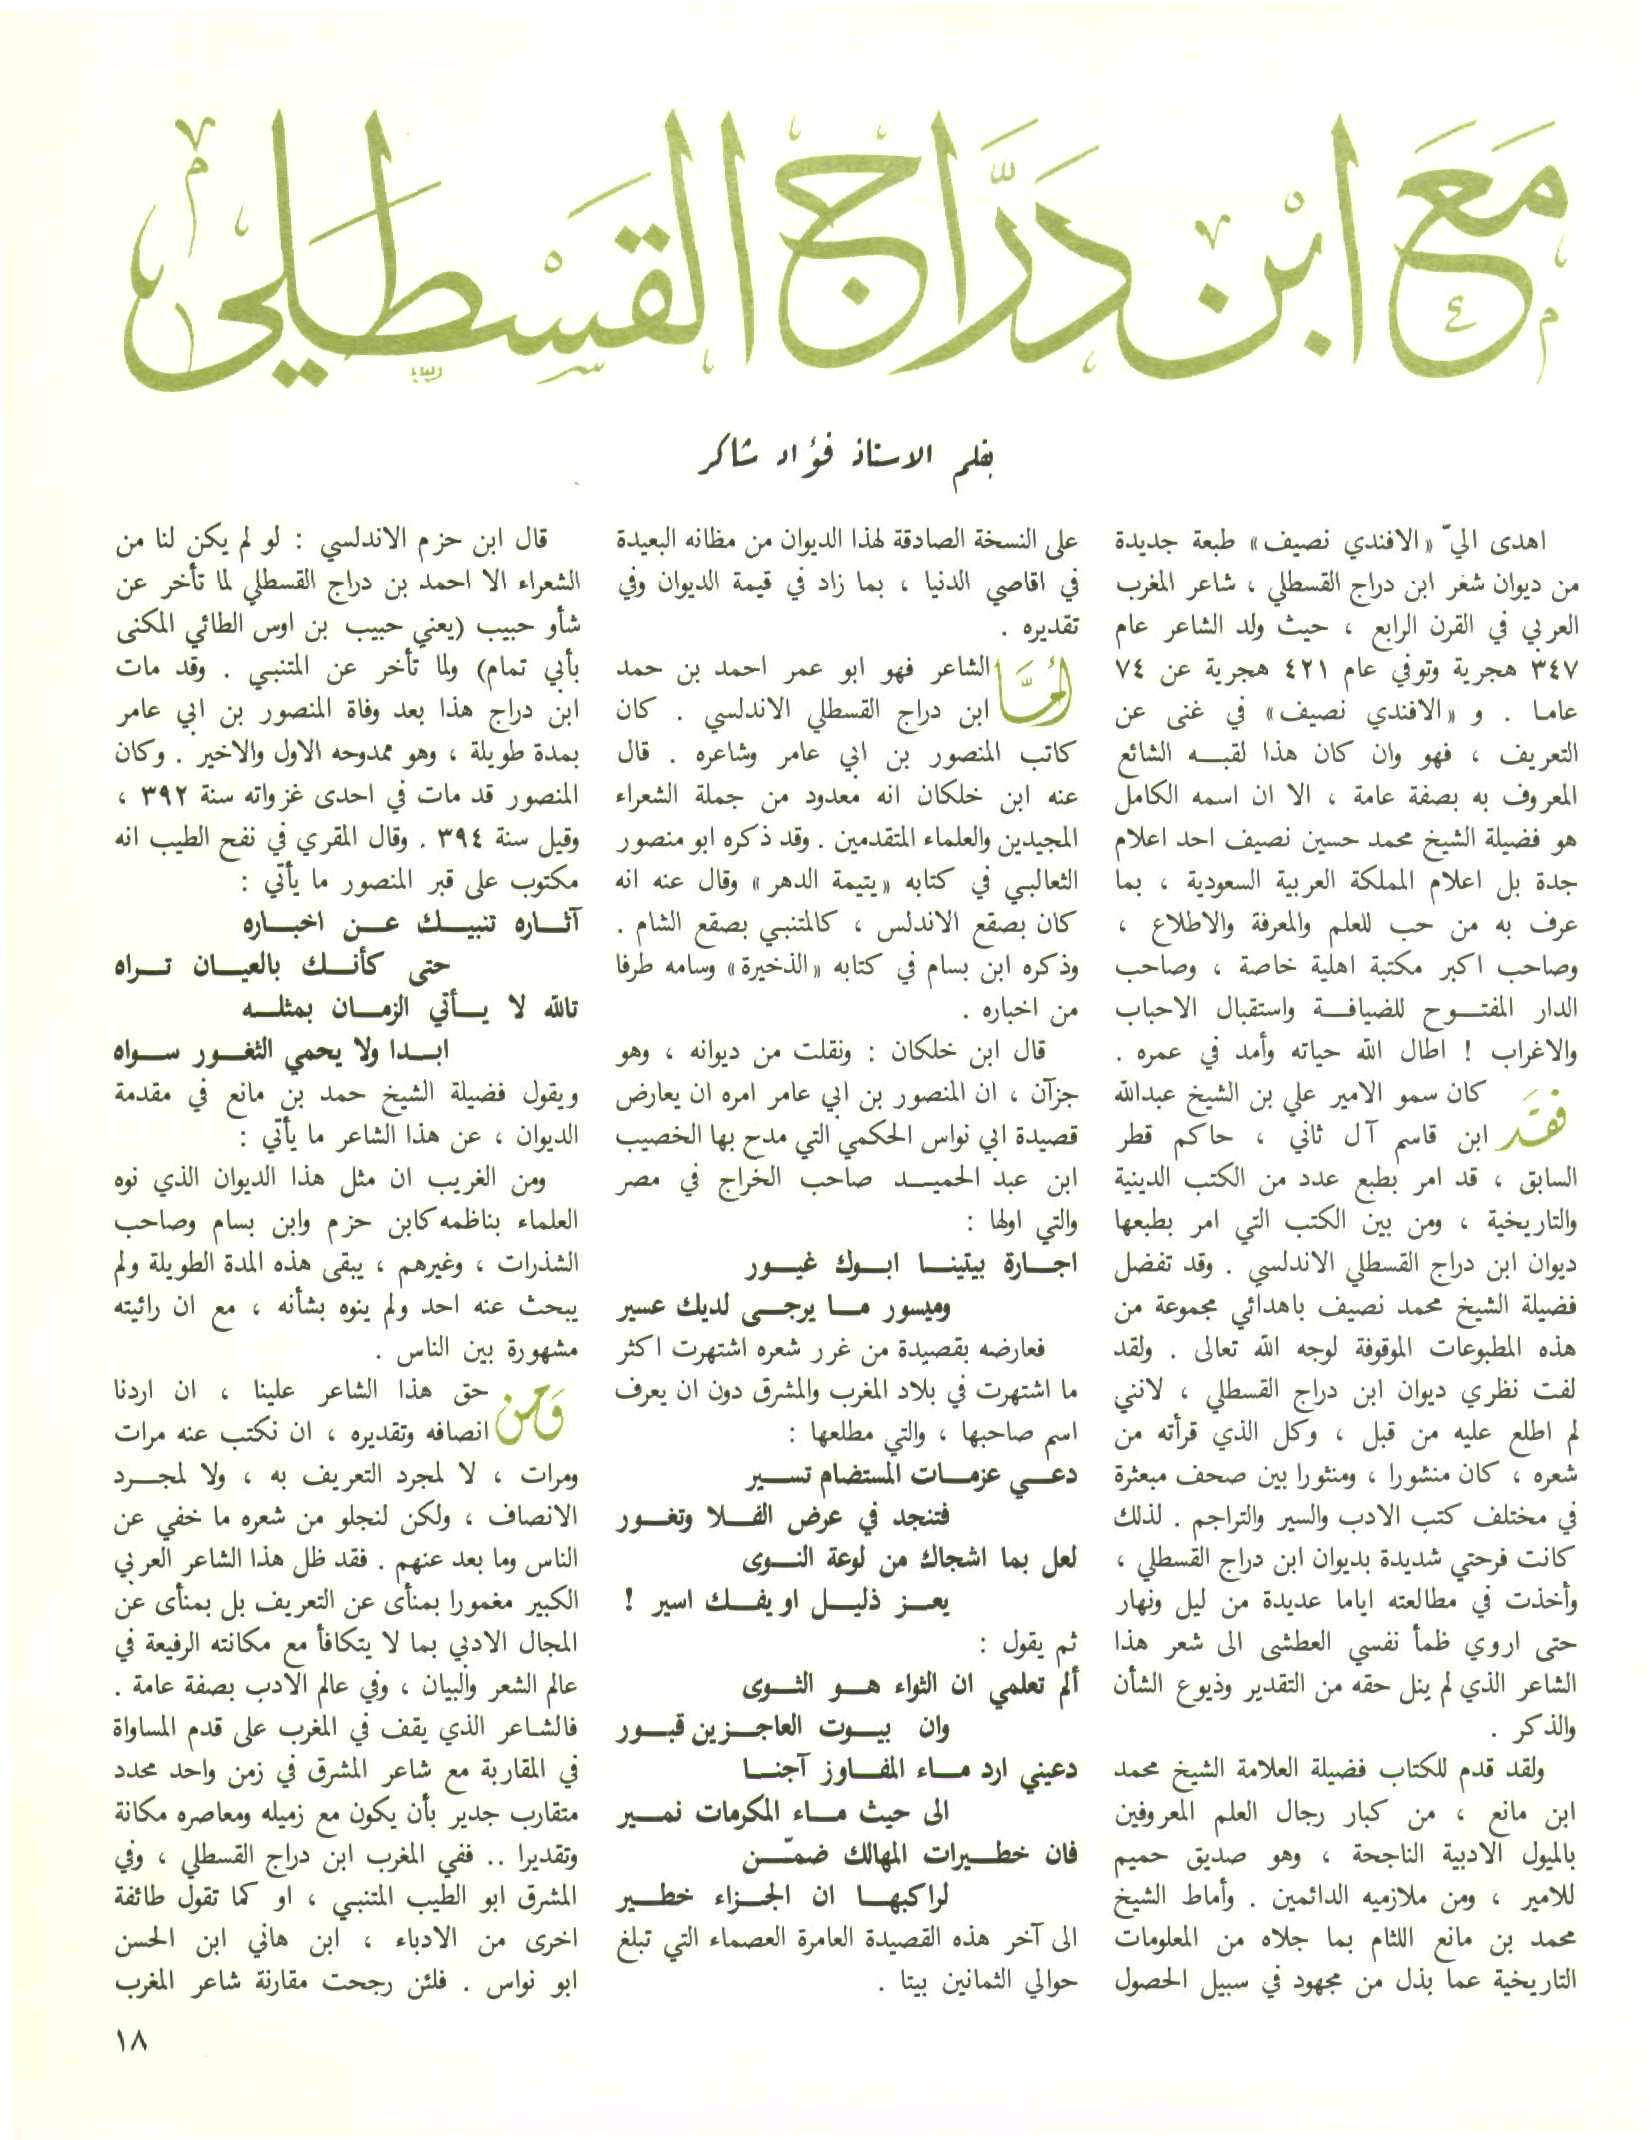 مَعَ ابْن دَرَّاج القَسْطَلِي
بقلم الاستاذ فؤاد شاكر
اهدى اليّ «الافندي نصيف» طبعة جديدة
من ديوان شعر ابن دراج القسطلي ، شاعر المغرب
العربي في القرن الرابع ، حيث ولد الشاعر عام
٣٤٧ هجرية وتوفي عام ٤٢١ هجرية عن ٧٤
عاما . و «الافندي نصيف» في غنى عن
التعريف ، فهو وان كان هذا لقبه الشائع
المعروف به بصفة عامة ، الا ان اسمه الكامل
هو فضيلة الشيخ محمد حسين نصيف احد اعلام
جدة بل اعلام المملكة العربية السعودية ، بما
عرف به من حب للعلم والمعرفة والاطلاع ،
وصاحب اكبر مكتبة اهلية خاصة ، وصاحب
الدار المفتوح للضيافة واستقبال الاحباب
والاغراب ! اطال الله حياته وأمد في عمره .
فقد كان سمو الامير علي بن الشيخ عبدالله
ابن قاسم آل ثاني ، حاكم قطر
السابق ، قد امر بطبع عدد من الكتب الدينية
والتاريخية ، ومن بين الكتب التي امر بطبعها
ديوان ابن دراج القسطلي الاندلسي . وقد تفضل
فضيلة الشيخ محمد نصيف باهدائي مجموعة من
هذه المطبوعات الموقوفة لوجه الله تعالى . ولقد
لفت نظري ديوان ابن دراج القسطلي ، لانني
لم اطلع عليه من قبل ، وكل الذي قرأته من
شعره ، كان منشورا ، ومنثورا بين صحف مبعثرة
في مختلف كتب الادب والسير والتراجم . لذلك
كانت فرحتي شديدة بديوان ابن دراج القسطلي ،
وأخذت في مطالعته اياما عديدة من ليل ونهار
حتى اروي ظمأ نفسي العطشى الى شعر هذا
الشاعر الذي لم ينل حقه من التقدير وذيوع الشأن
والذكر .
ولقد قدم للكتاب فضيلة العلامة الشيخ محمد
ابن مانع ، من كبار رجال العلم المعروفين
بالميول الادبية الناجحة ، وهو صديق حميم
للامير ، ومن ملازميه الدائمين . وأماط الشيخ
محمد بن مانع اللثام بما جلاه من المعلومات
التاريخية عما بذل من مجهود في سبيل الحصول
على النسخة الصادقة لهذا الديوان من مظانه البعيدة
في اقاصي الدنيا ، بما زاد في قيمة الديوان وفي
تقديره .
أمّا الشاعر فهو ابو عمر احمد بن حمد
ابن دراج القسطلي الاندلسي . كان
كاتب المنصور بن ابي عامر وشاعره . قال
عنه ابن خلكان انه معدود من جملة الشعراء
المجيدين والعلماء المتقدمين . وقد ذكره ابو منصور
الثعالبي في كتابه «يتيمة الدهر» وقال عنه انه
كان بصقع الاندلس ، كالمتنبي بصقع الشام .
وذكره ابن بسام في كتابه «الذخيرة» وسامه طرفا
من اخباره .
قال ابن خلكان : ونقلت من ديوانه ، وهو
جزآن ، ان المنصور بن ابي عامر امره ان يعارض
قصيدة ابي نواس الحكمي التي مدح بها الخصيب
ابن عبد الحميد صاحب الخراج في مصر
والتي اولها :
اجارة بيتينا ابوك غيور
وميسور ما يرجى لديك عسير
فعارضه بقصيدة من غرر شعره اشتهرت اكثر
ما اشتهرت في بلاد المغرب والمشرق دون ان يعرف
اسم صاحبها ، والتي مطلعها :
دعي عزمات المستضام تسير
فتنجد في عرض الفلا وتغور
لعل بما اشجاك من لوعة النوى
يعز ذليل او يفك اسير !
ثم يقول :
ألم تعلمي ان الثواء هو الثوى
وان بيوت العاجزين قبور
دعيني ارد ماء المفاوز آجنا
الى حيث ماء المكرمات نمير
فان خطيرات المهالك ضمّن
لراكبها ان الجزاء خطير
الى آخر هذه القصيدة العامرة العصماء التي تبلغ
حوالي الثمانين بيتا .
قال ابن حزم الاندلسي : لو لم يكن لنا من
الشعراء الا احمد بن دراج القسطلي لما تأخر عن
شأو حبيب (يعني حبيب بن اوس الطائي المكنى
بأبي تمام) ولما تأخر عن المتنبي . وقد مات
ابن دراج هذا بعد وفاة المنصور بن ابي عامر
بمدة طويلة ، وهو ممدوحه الاول والاخير . وكان
المنصور قد مات في احدى غزواته سنة ٣٩٢ ،
وقيل سنة ٣٩٤ . وقال المقري في نفح الطيب انه
مكتوب على قبر المنصور ما يأتي :
آثاره تنبيك عن اخباره
حتى كأنك بالعيان تراه
تالله لا يأتي الزمان بمثله
ابدا ولا يحمي الثغور سواه
ويقول فضيلة الشيخ حمد بن مانع في مقدمة
الديوان ، عن هذا الشاعر ما يأتي :
ومن الغريب ان مثل هذا الديوان الذي نوه
العلماء بناظمه كابن حزم وابن بسام وصاحب
الشذرات ، وغيرهم ، يبقى هذه المدة الطويلة ولم
يبحث عنه احد ولم ينوه بشأنه ، مع ان رائيته
مشهورة بين الناس .
وَمِن حق هذا الشاعر علينا ، ان اردنا
انصافه وتقديره ، ان نكتب عنه مرات
ومرات ، لا لمجرد التعريف به ، ولا لمجرد
الانصاف ، ولكن لنجلو من شعره ما خفي عن
الناس وما بعد عنهم . فقد ظل هذا الشاعر العربي
الكبير مغمورا بمنأى عن التعريف بل بمنأى عن
المجال الادبي بما لا يتكافأ مع مكانته الرفيعة في
عالم الشعر والبيان ، وفي عالم الادب بصفة عامة .
فالشاعر الذي يقف في المغرب على قدم المساواة
في المقاربة مع شاعر المشرق في زمن واحد محدد
متقارب جدير بأن يكون مع زميله ومعاصره مكانة
وتقديرا .. ففي المغرب ابن دراج القسطلي ، وفي
المشرق ابو الطيب المتنبي ، او كما تقول طائفة
اخرى من الادباء ، ابن هاني ابن الحسن
ابو نواس . فلئن رجحت مقارنة شاعر المغرب
١٨